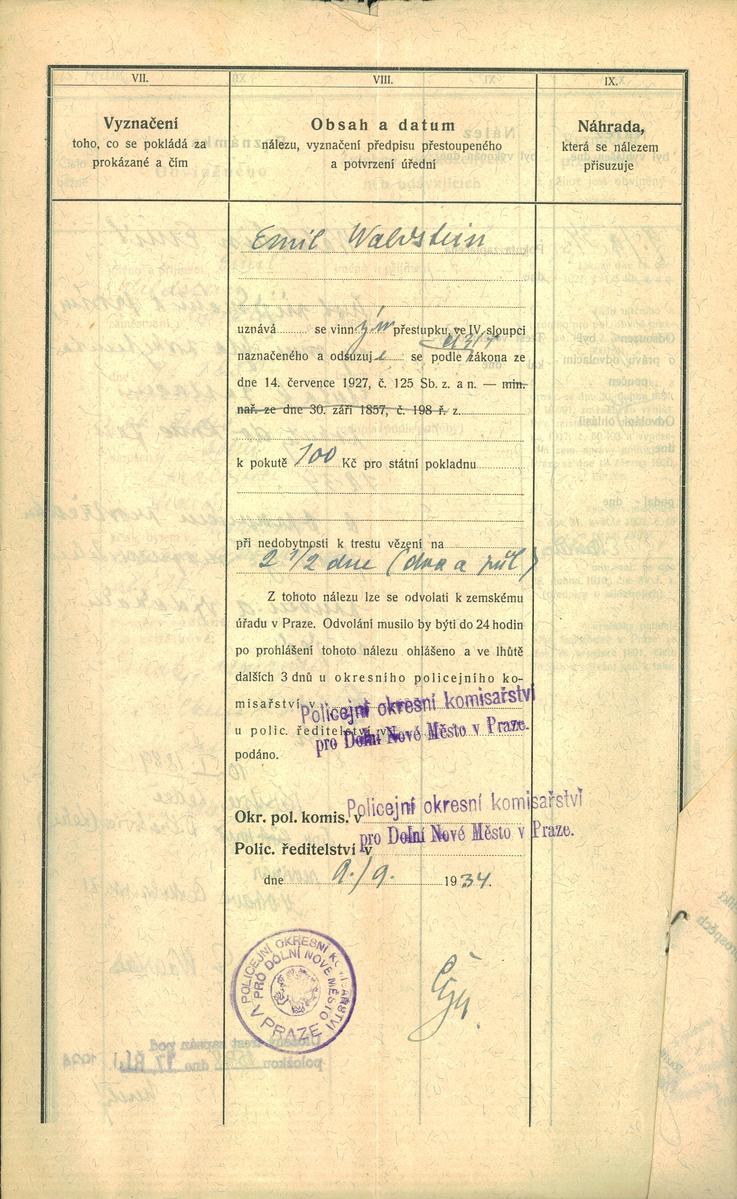 VII.
VIII.
IX.
Vyznačení
toho, co se pokládá za
prokázané a čím
Obsah a datum
nálezu, vyznačení předpisu přestoupeného
a potvrzení úřední
Náhrada,
která se nálezem
přisuzuje
Emil Waldstein
uznává se vinným přestupku, ve IV. sloupci
naznačeného a odsuzuje se podle zákona ze
dne 14. července 1927, č. 125 Sb. z. a n. — min.
nař. ze dne 30. září 1857, č. 198 ř. z.
k pokutě 100 Kč pro státní pokladnu
při nedobytnosti k trestu vězení na
2 1/2 dne (dva a půl)
Z tohoto nálezu lze se odvolati k zemskému
úřadu v Praze. Odvolání musilo by býti do 24 hodin
po prohlášení tohoto nálezu ohlášeno a ve lhůtě
dalších 3 dnů u okresního policejního ko-
misařství v
Policejní okresní komisařství
u polic. ředitelství v
pro Dolní Nové Město v Praze.
podáno.
Policejní okresní komisařství
Okr. pol. komis. v
pro Dolní Nové Město v Praze.
Polic. ředitelství v
dne 9./9. 1934.
POLICEJNÍ OKRESNÍ KOMISAŘSTVÍ
PRO DOLNÍ NOVÉ MĚSTO
V PRAZE